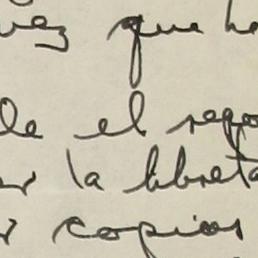 vez que ha
le el rego
r la libreta
r copias